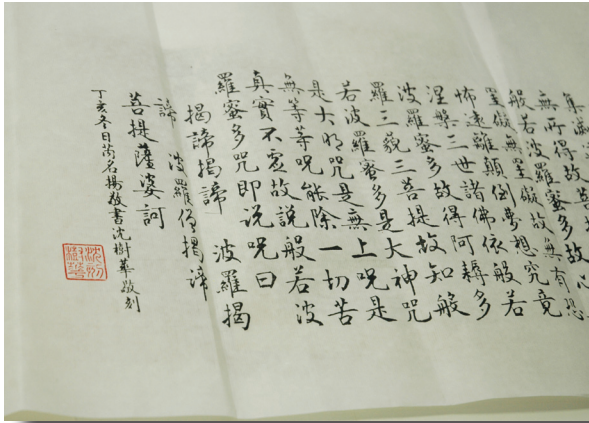 集滅
無所得故菩
般若波羅蜜多故心
罣礙無罣礙故無有恐
怖遠離顛倒夢想究竟
涅槃三世諸佛依般若
波羅蜜多故得阿耨多
羅三藐三菩提故知般
若波羅蜜多是大神咒
是大明咒是無上呪是
無等等呪能除一切苦
真實不虛故說般若波
羅蜜多咒即说呪曰
揭諦揭諦 波羅揭
諦 波羅僧揭諦
菩提薩婆訶
丁亥冬日名揚敬書沈樹華敬刻